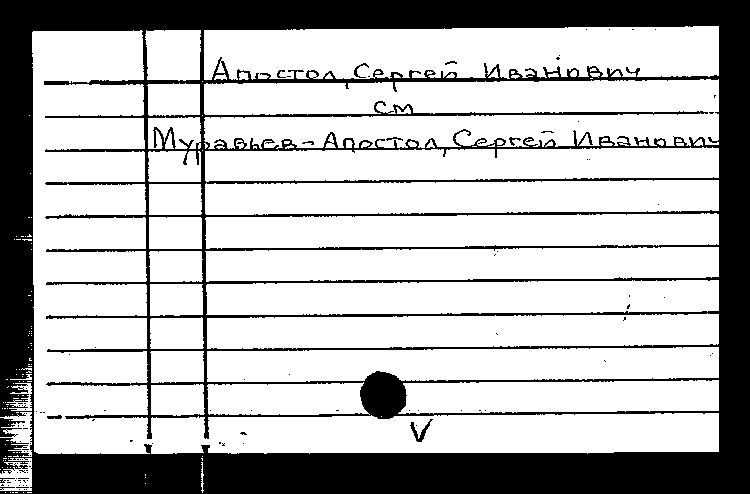 Апостол, Сергей Иванович
см
Муравьев-Апостол, Сергей Иванович
V